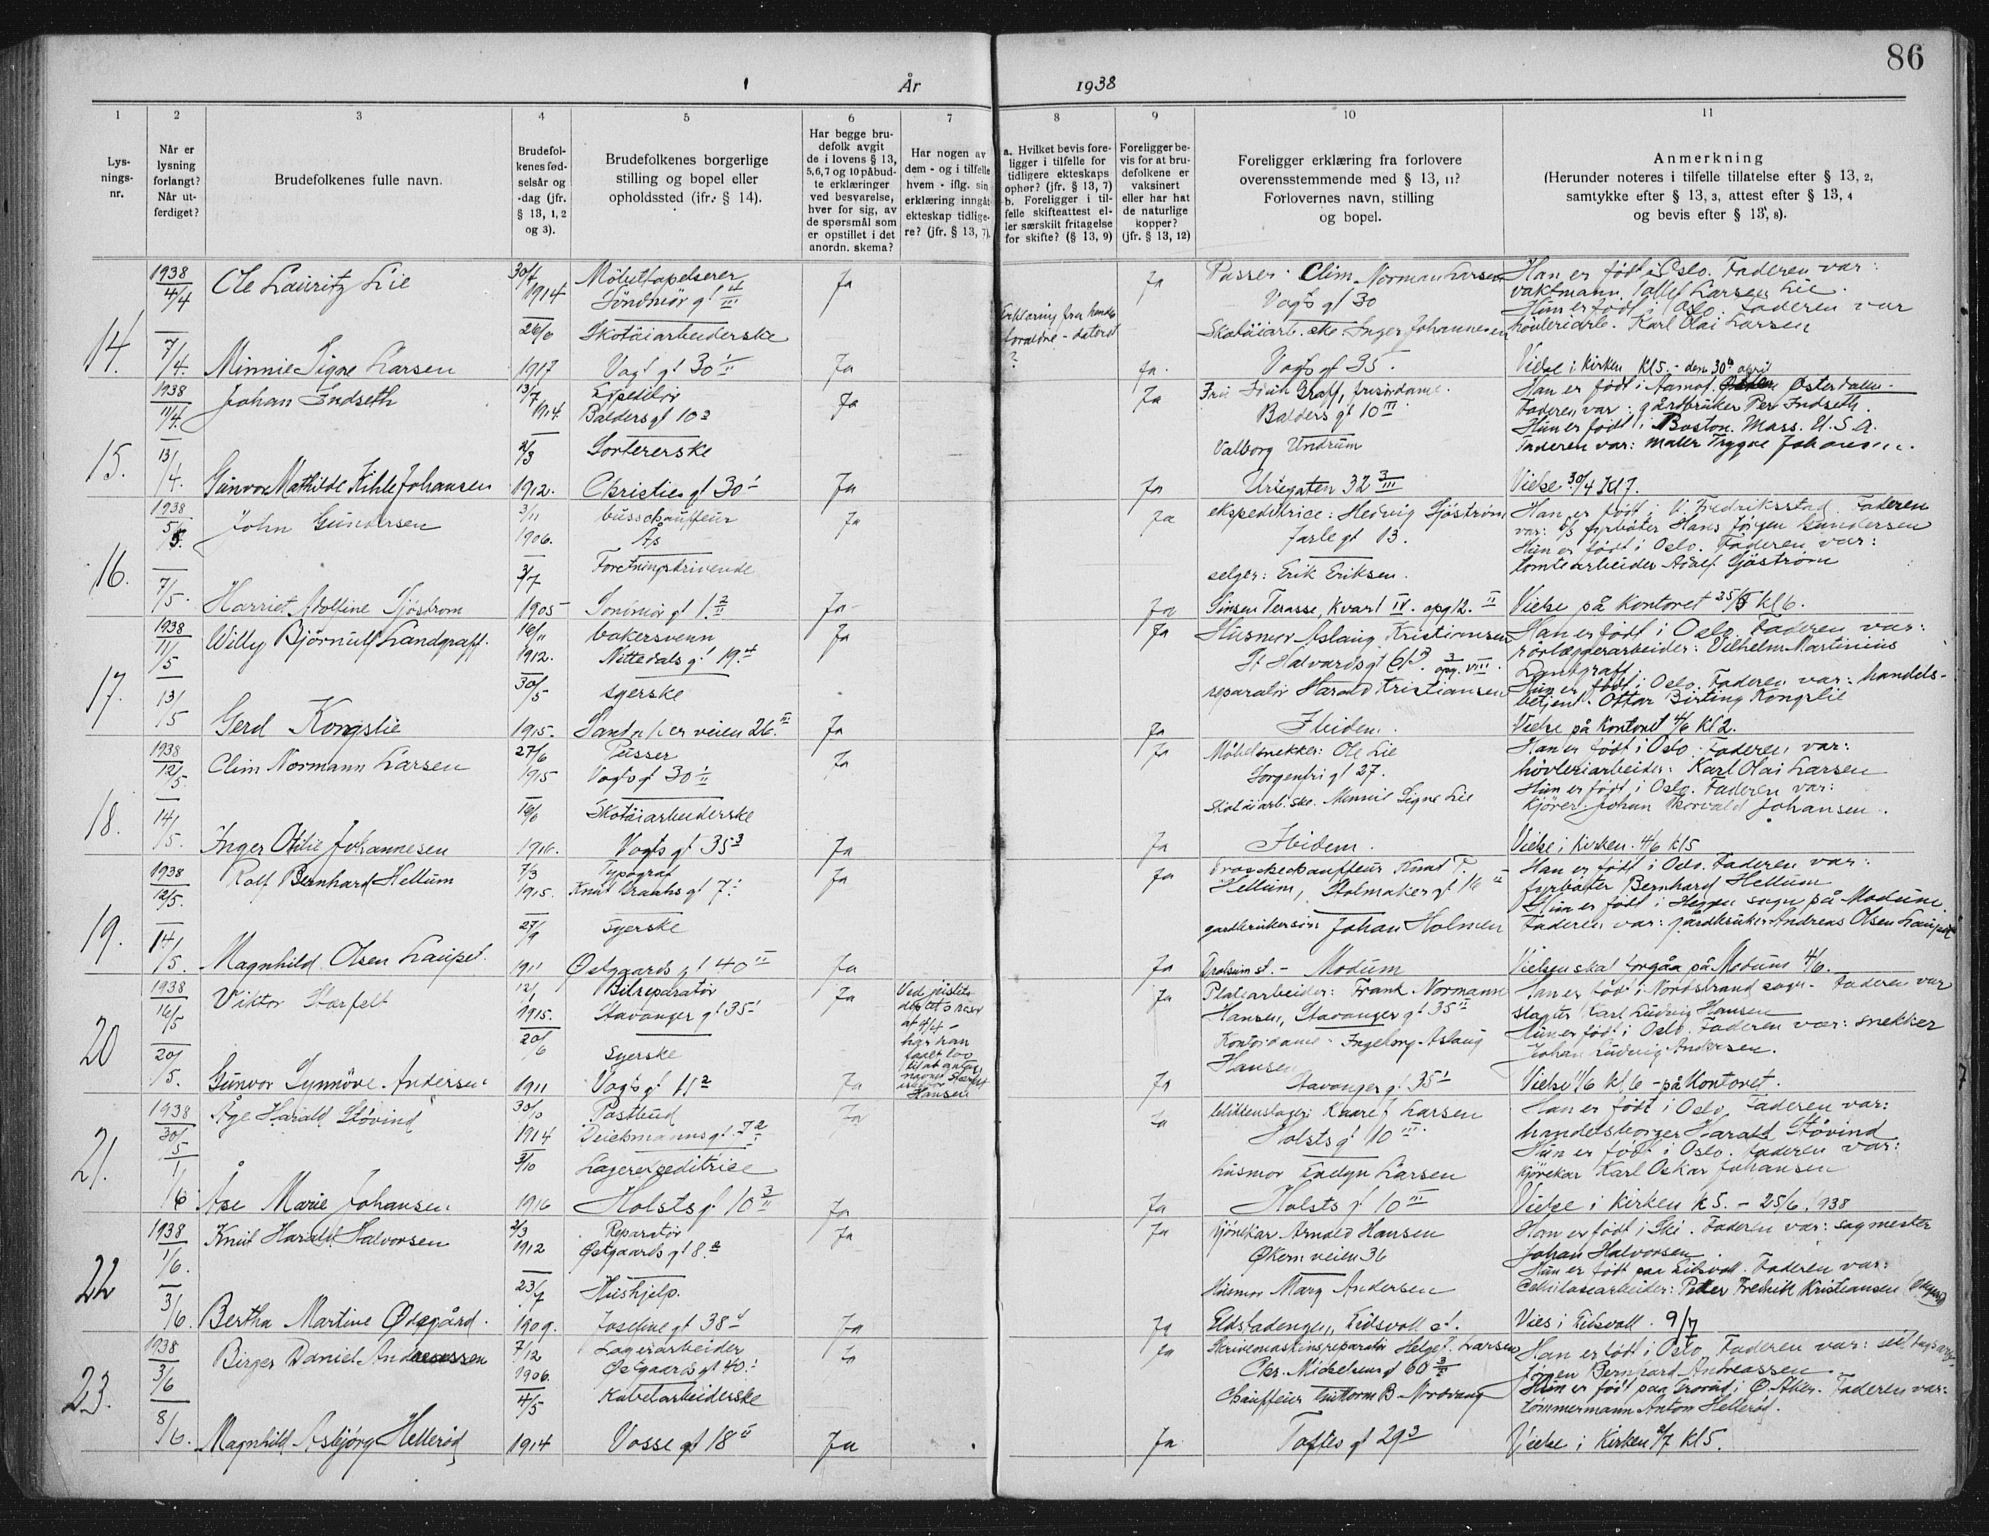 86
År 1938
1
2
3
4
5
6
7
8
9
10
11
Lys-
nings-
nr.
Når er
lysning
forlangt?
Når ut-
ferdiget?
Brudefolkenes fulle navn.
Brudefol-
kenes fød-
selsår og
-dag (jfr.
§ 13, 1, 2
og 3).
Brudefolkenes borgerlige
stilling og bopel eller
opholdssted (jfr. § 14).
Har begge bru-
defolk avgit
de i lovens § 13,
5,6,7 og 10 påbud-
te erklæringer
ved besvarelse,
hver for sig, av
de spørsmål som
er opstillet i det
anordn. skema?
Har nogen av
dem - og i tilfelle
hvem - iflg. sin
erklæring inngåt
ekteskap tidlige-
re? (jfr. § 13, 7).
a. Hvilket bevis fore-
ligger i tilfelle for
tidligere ekteskaps
ophør? (jfr. § 13, 7)
b. Foreligger i til-
felle skifteattest el-
ler særskilt fritagelse
for skifte? (§ 13, 9)
Foreligger be-
vis for at bru-
defolkene er
vaksinert
eller har hat
de naturlige
kopper?
(jfr. § 13, 12)
Foreligger erklæring fra forlovere
overensstemmende med § 13, 11?
Forlovernes navn, stilling
og bopel.
Anmerkning
(Herunder noteres i tilfelle tillatelse efter § 13, 2,
samtykke efter § 13, 3, attest efter § 13, 4
og bevis efter § 13, 8).
14.
1938
4/4
7/4.
Ole Lauritz Lie
30/4
1914
Møbeltapetserer
Ja
Ja
Pusser: Clim Norman Larsen
Vogts gt 30
Han er født i Oslo. Faderen var:
vaktmann Larsen Lie.
Hun er født i Oslo. Faderen var
høvleriarb. Karl Olai Larsen
26/6
Skotøiarbeiderske
Skotøiarb.ske Inger Johannesen
Minnie Signe Larsen
1917
Vogts gt 30 I/II
Ja
Ja.
Vogts gt 35.
Vielse i kirken kl 5. - den 30te april
15.
1938
11/4.
13/4
Johan Indseth
13/7
1914
Expeditør
Balders gt 10
Ja
Ja
Fru Graff, frisørdame.
Balders gt 10 II
Han er født i Aamot Østerdalen -
Faderen var: gårdbruker Per Indseth.
Hun er født i Boston. Mass. U.S.A.
Faderen var: maler Trygve Johansen.
2/3
Sortererske
Valborg Undrum
Gunvor Mathilde Kihle Johansen
1912.
Christies gt 30
Ja
Ja
Urtegaten 32 3/III
Vielse 30/4 kl 7.
16.
1938
5/5.
7/5.
John Gundersen
3/11
1906.
busschauffeur
Ås
Ja
Ja
ekspeditrice: Hedvig Sjöström
Jarle gt 13.
Han er født i V. Fredriksstad. Faderen
var: fyrbøter Hans Jørgen Gundersen
Hun er født i Oslo. Faderen var:
tomtearbeider Adolf Sjöström
3/7
Forretningsdrivende
selger: Erik Eriksen.
Harriet Adolfine Sjöström
1905
Ja
Ja
Sinsen Terasse, Kvart IV. opg 12. II
Vielse på kontoret 25/5 kl 6.
17.
1938
11/5
13/5
Willy Bjørnulf Landgraff.
16/11
1912.
bakersvenn
Nittedals gt 19.4
Ja
Ja
Husmor Aslaug Kristiansen
St Halvards gt 61 opg. VIII.
Han er født i Oslo. Faderen var:
rørlæggerarbeider: Vilhelm Martinius
Landgraff.
Hun er født i Oslo. Faderen var: handels-
betjent. Ottar Birting Kongslie
30/5
syerske
reparatør Harald Kristiansen
Gerd Kongslie
1915.
Ja
Ja
Ibidem.
Vielse på kontoret 4/6 kl 2.
18.
1938
12/5.
14/5.
Clim Normann Larsen
27/6
1915
Pusser
Vogts gt 30 I/II
Ja
Ja
Møbelsnekker: Ole Lie
Sorgenfri gt 27.
Han er født i Oslo. Faderen var:
høvleriarbeider: Karl Olai Larsen
Hun er født i Oslo. Faderen var:
Kjører Johan Thorvald Johansen.
16/6
Skotøiarbeiderske
Skotøiarb.ske. Minnie Signe Lie
Inger Otilie Johannesen
1916.
Vogts gt 35 3
Ja
Ja
Ibidem.
Vielse i kirken. 4/6 kl 5
19.
1938
12/5.
14/5.
Rolf Bernhard Hellum
7/3
1915.
Typograf
Knud Graahs gt 7.
Ja
Ja
Droschechauffeur Knut T.
Hellum, Stolmaker gt 16 II
Han er født i Oslo. Faderen var:
fyrbøter Bernhard Hellum
Hun er født i Heggen sogn på Modum.
Faderen var: gårdbruker Andreas Olsen Laupet
27/9
syerske
gardbrukersøn: Johan Holmen
Magnhild Olsen Laupet.
1911
Østgaards gt 40 II
Ja
Ja
st. - Modum
Vielsen skal foregåa på Modum 4/6.
20
1938
16/5
20/5.
Viktor Størfelt
12/1
1915.
Bilreparatør
Stavanger gt 35
Ja
Ved justits-
Ja
Platearbeider: Frank Normann
Hansen, Stavanger gt 35 II
Han er født i Nordstrand sogn. Faderen var
slagter Karl Ludvig Hansen
Hun er født i Oslo. Faderen var: snekker
Johan Ludvig Andersen.
20/6
syerske
Kontordame Ingeborg Aslaug
Hansen
Gunvor Synnøve Andersen
1911
Vogts gt 11 2
Ja
Hansen
Ja
Stavanger gt 35
Vielse 11/6 kl 6 - på kontoret.
21.
1938
30/5
1/6
Åge Harald Støvind
30/10
1914
Postbud
Deichmanns gt
Ja
Ja
blikkenslager Kaare Larsen
Holsts gt 10 III.
Han er født i Oslo. Faderen var:
handelsborger Harald Støvind
Hun er født i Oslo. Faderen var:
kjørekar Karl Oskar Johansen
3/10
Lagerexpeditrice
husmor Evelyn Larsen
Åse Marie Johansen
1916
Holsts gt 10 3/II
Ja
Ja
Holsts gt 10 III
Vielse i kirken k 5. - 25/6. 1938
22
1938
1/6.
3/6.
Knut Harald Halvorsen
2/3
1912
Reparatør
Østgaards gt 8.
Ja
Ja
kjørekar Arnold Hansen
Økern veien 36
Han er født i Ski. Faderen var: sagmester
Johan Halvorsen.
Hun er født paa Eidsvoll. Faderen var:
Cellulosearbeider: Peder Fredrik Kristiansen
23/7
Hushjelp.
Husmor Mary Andersen
Bertha Martine Ødegård.
1909.
Josefine gt 38
Ja
Ja
Eidsvoll st.
Vies i Eidsvoll. 9/7
23.
1938
3/6
8/6.
Birger Daniel Andreassen
7/12
1906.
Lagerarbeider
Østgaards gt 40.
Ja
Ja
Skrivemaskinsreparatør Helge F. Larsen
Chr. Michelsens gt 60
Han er født i Oslo. Faderen var:
Jørgen Bernhard Andreassen
Hun er født paa Grorud i Ø. Aker. Faderen var:
tømmermann Anton Hellerød.
4/5
Kabelarbeiderske
Chauffeur Guttorm B. Nordvang
Magnhild Asbjørg Hellerød
1914
Vosse gt 18 II
Ja
Ja
Toftes gt 29 3
Vielse i Kirken 2/7 kl 5.